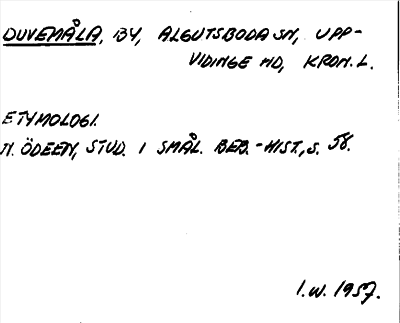 DUVEMÅLA, BY, ALGUTSBODA SN, UPP-
VIDINGE HD, KRON. L.
ETYMOLOGI.
N. ÖDEEN, STUD. I SMÅL. BEB.-HIST., S. 58.
I.W. 1957.